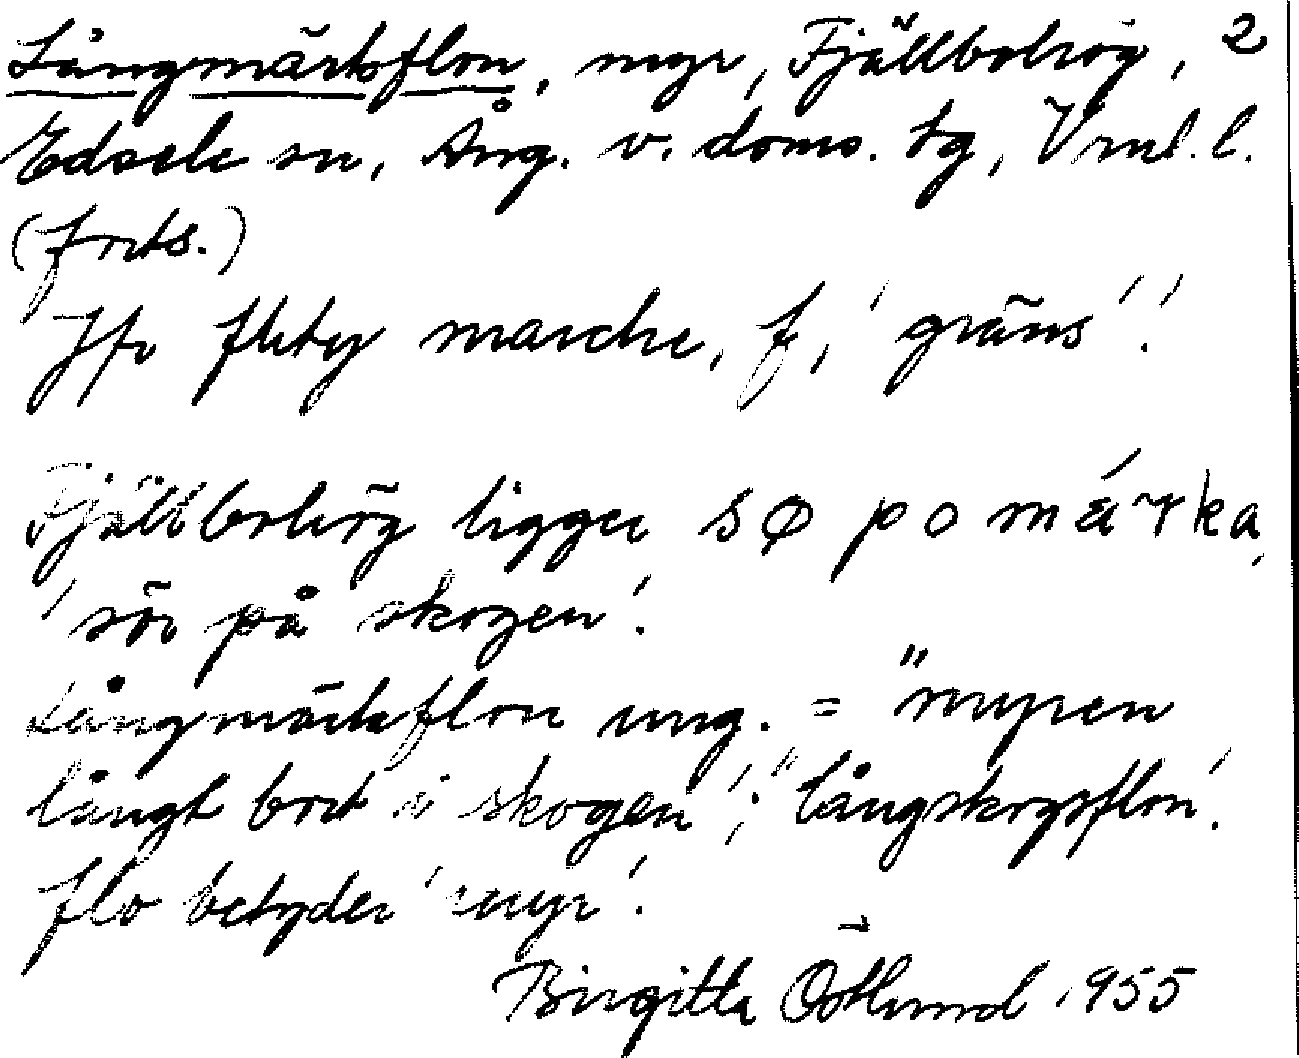 Långmärksflon, myr, Fjällbohög, 2
Edsele sn, Ång. v. doms. tg, Vrml. l.
(forts.)
Jfr marche, f, 'gräns'!
Fjällbohög ligger sø po márka,
'sör på skogen'.
Långmärksflon ung. = "myren
långt bort i skogen'; "långskogsflon'.
flo betyder 'myr'.
Birgitta Östlund 1955